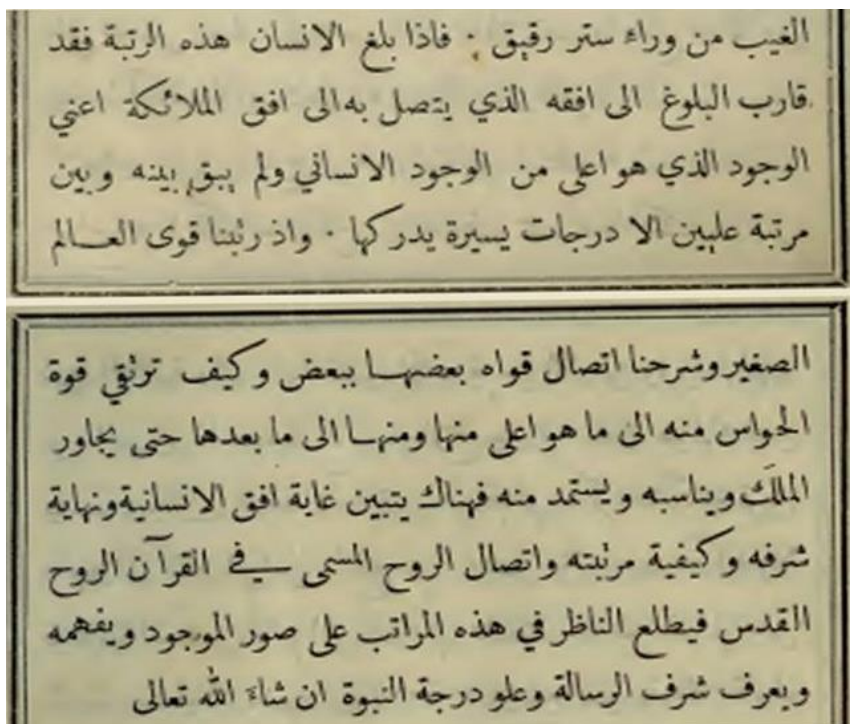 الغيب من وراء ستر رقيق . فاذا بلغ الانسان هذه الرتبة فقد
قارب البلوغ الى افقه الذي يتصل به الى افق الملائكة اعني
الوجود الذي هو اعلى من الوجود الانساني ولم يبق بينه وبين
مرتبة عليين الا درجات يسيرة يدركها . واذ رتبنا قوى العـالم
الصغير وشرحنا اتصال قواه بعضهـا ببعض وكيف ترتقي قوة
الحواس منه الى ما هو اعلى منها ومنهـا الى ما بعدها حتى يجاور
الملَك ويناسبه ويستمد منه فهناك يتبين غاية افق الانسانية ونهاية
شرفه وكيفية مرتبته واتصال الروح المسمى في القرآن الروح
القدس فيطلع الناظر في هذه المراتب على صور الموجود ويفهمه
ويعرف شرف الرسالة وعلو درجة النبوة ان شاءَ الله تعالى